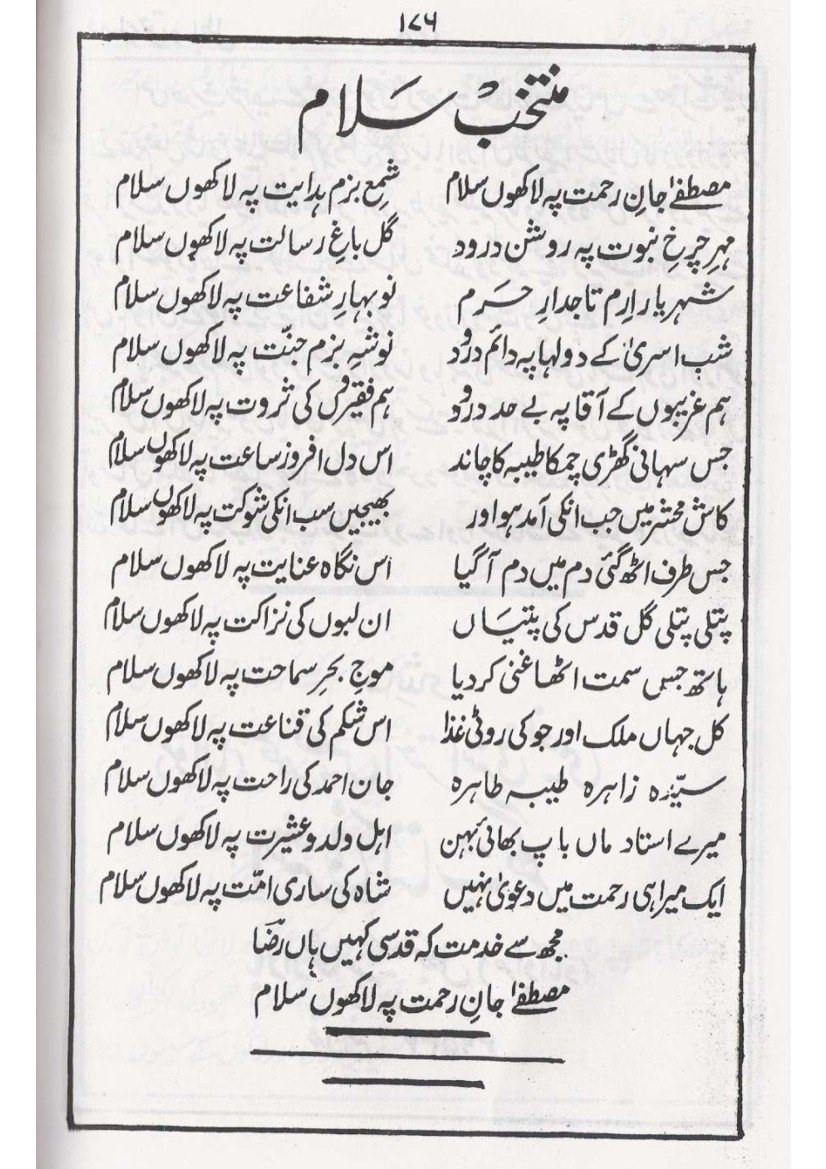 ۱۷۶
منتخب سلام
مصطفےٰ جانِ رحمت پہ لاکھوں سلام شمعِ بزم ہدایت پہ لاکھوں سلام
مہرِ چرخ نبوت پہ روشن درود گل باغِ رسالت پہ لاکھوں سلام
شہر یارِ ارم تاجدارِ حرم نو بہارِ شفاعت پہ لاکھوں سلام
شب اسریٰ کے دولہا پہ دائم درود نوشۂ بزم جنّت پہ لاکھوں سلام
ہم غریبوں کے آقا پہ بے حد درود ہم فقیروں کی ثروت پہ لاکھوں سلام
جس سہانی گھڑی چمکا طیبہ کا چاند اس دل افروز ساعت پہ لاکھوں سلام
کاش محشر میں جب انکی آمد ہو اور بھیجیں سب انکی شوکت پہ لاکھوں سلام
جس طرف اٹھ گئی دم میں دم آگیا اس نگاہ عنایت پہ لاکھوں سلام
پتلی پتلی گل قدس کی پتیاں ان لبوں کی نزاکت پہ لاکھوں سلام
ہاتھ جس سمت اٹھا غنی کر دیا موجِ بحرِ سماحت پہ لاکھوں سلام
کل جہاں ملک اور جو کی روٹی غذا اس شکم کی قناعت پہ لاکھوں سلام
سیّدہ زاہرہ طیبہ طاہرہ جان احمد کی راحت پہ لاکھوں سلام
میرے استاد ماں باپ بھائی بہن اہل ولد و عشیرت پہ لاکھوں سلام
ایک میرا ہی رحمت میں دعویٰ نہیں شاہ کی ساری امّت پہ لاکھوں سلام
مجھ سے خدمت کہ قدسی کہیں ہاں رضؔا
مصطفےٰ جانِ رحمت پہ لاکھوں سلام